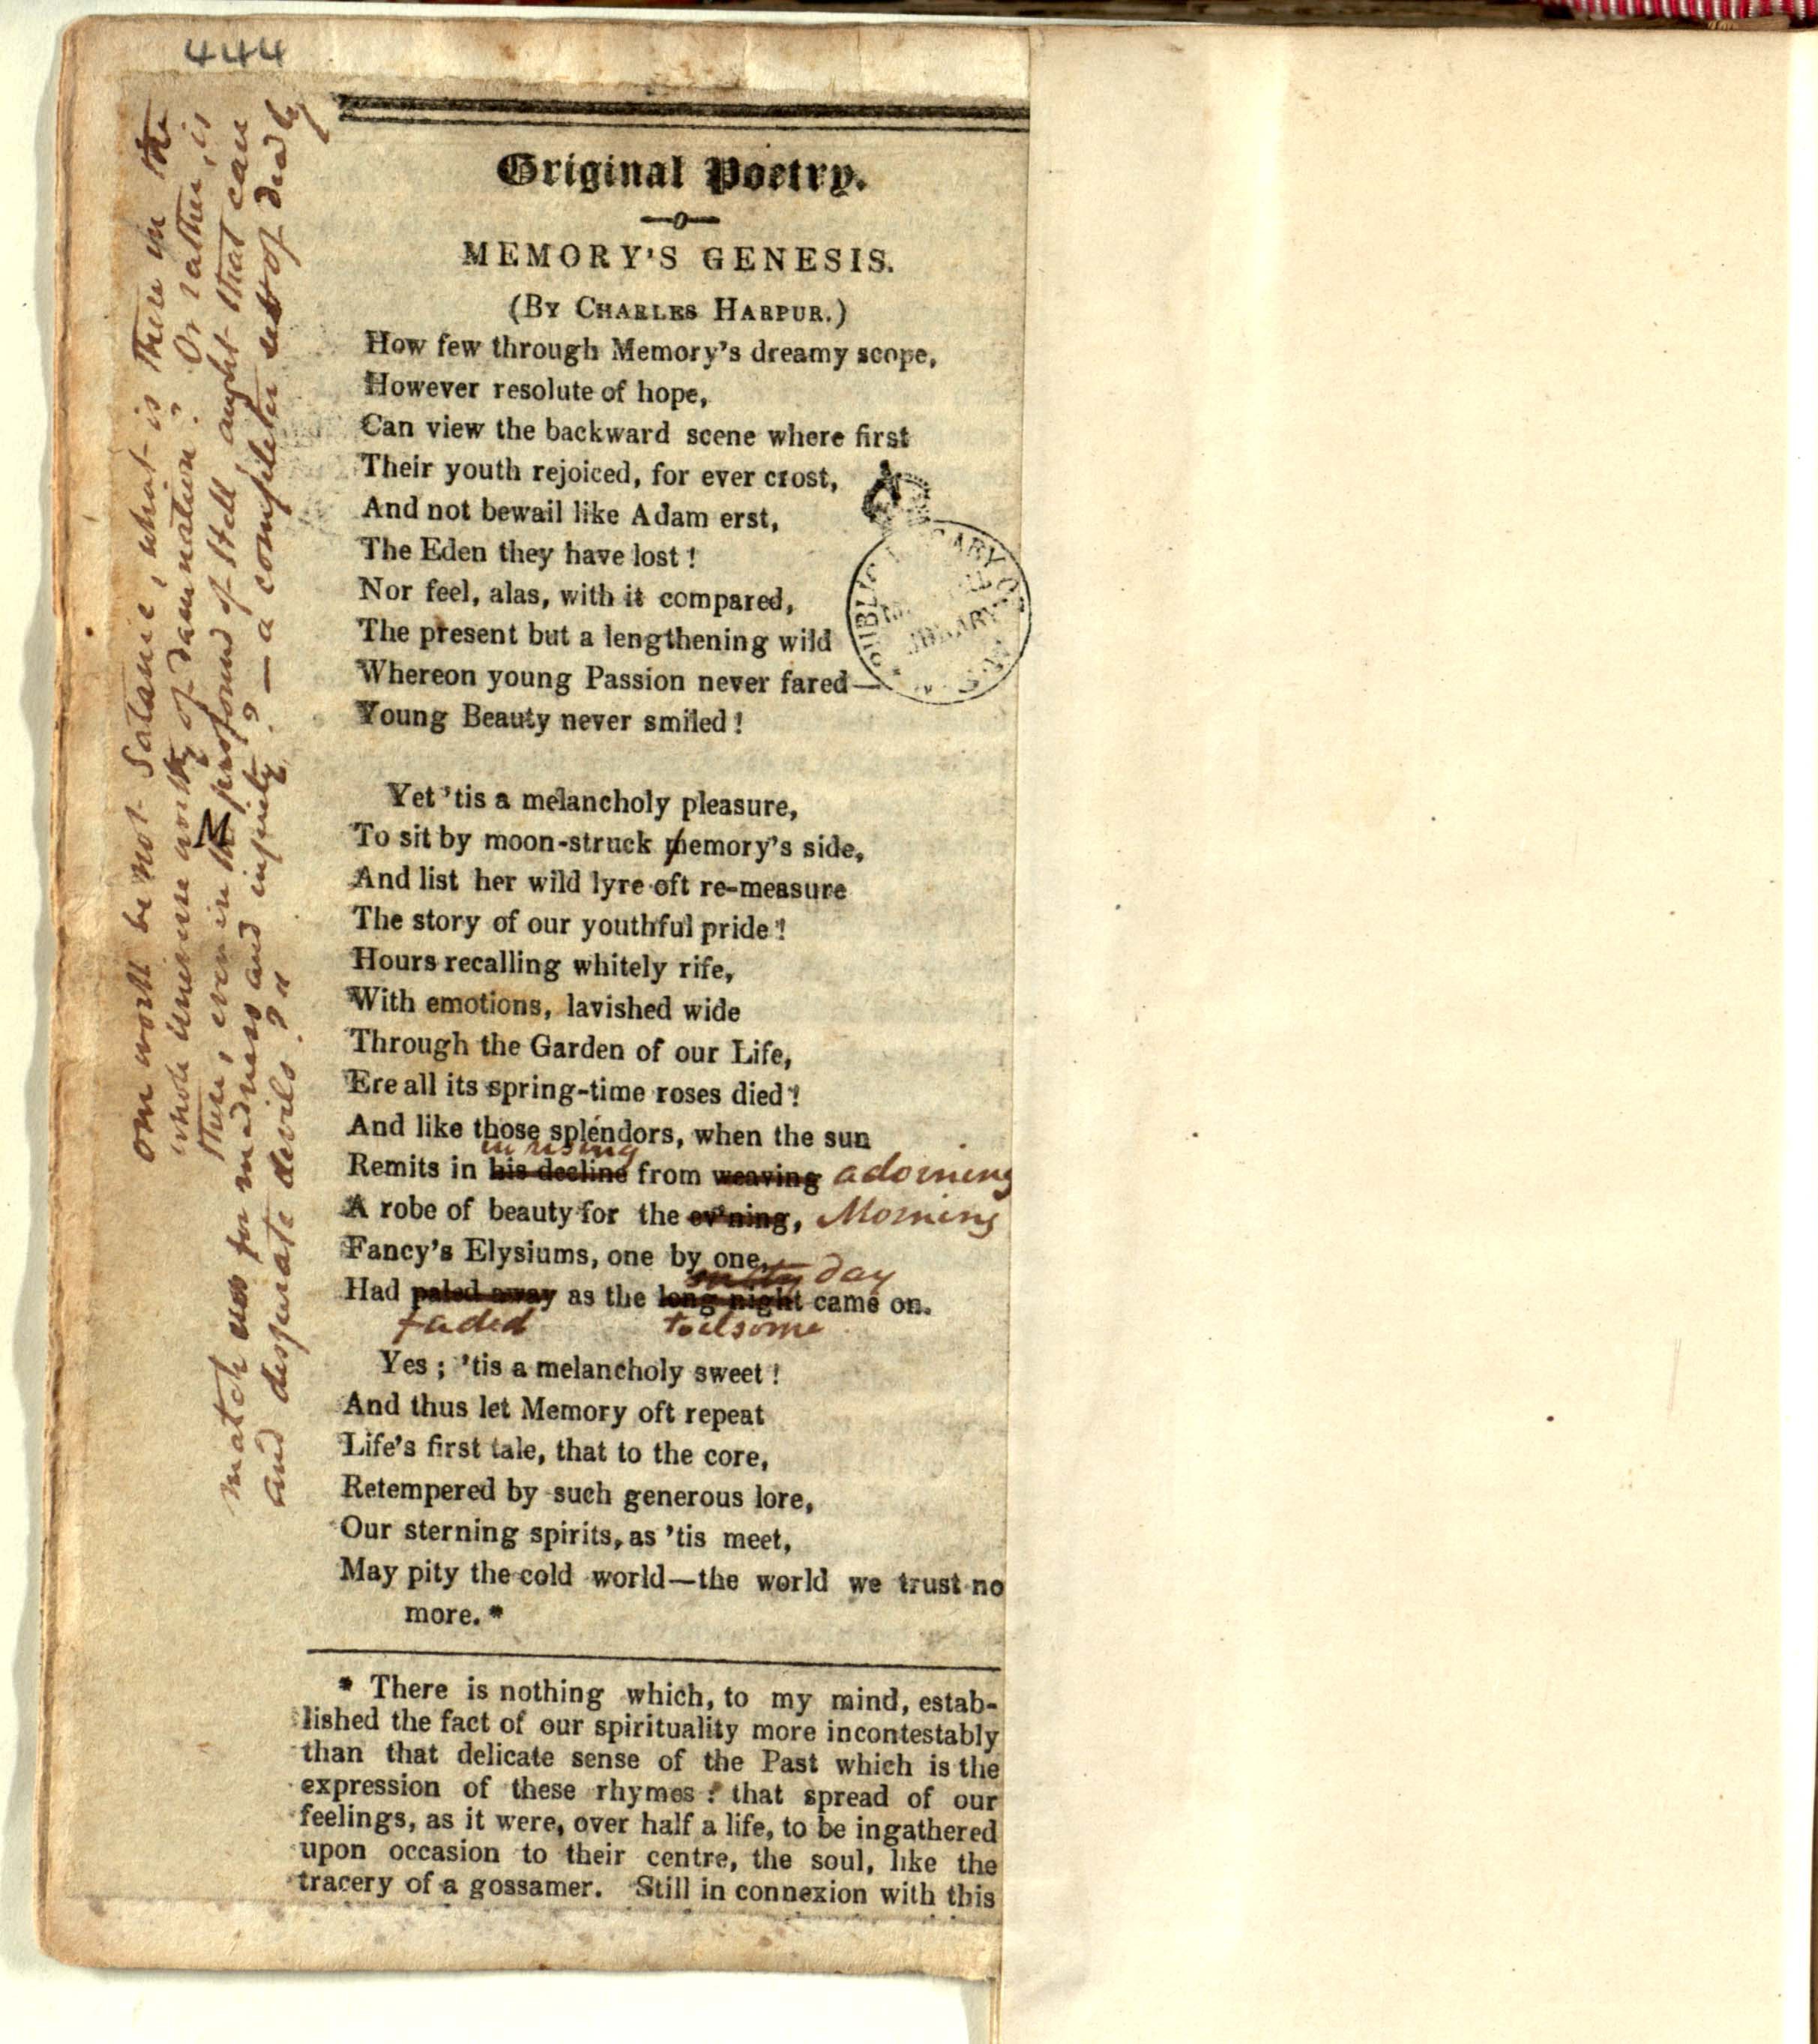 444
Original Poetry.
MEMORY'S GENESIS.
(By Charles Harpur.)
How few through Memory's dreamy scope,
However resolute of hope,
Can view the backward scene where first
Their youth rejoiced, for ever crost,
And not bewail like Adam erst,
The Eden they have lost!
Nor feel, alas, with it compared,
The present but a lengthening wild
Whereon young Passion never fared—
Young Beauty never smiled!
Yet 'tis a melancholy pleasure,
M
To sit by moon-struck memory's side,
And list her wild lyre oft re-measure
The story of our youthful pride!
Hours recalling whitely rife,
With emotions, lavished wide
Through the Garden of our Life,
Ere all its spring-time roses died!
And like those splendors, when the sun
in rising
Remits in his decline from weaving adorning
A robe of beauty for the ev'ning, Morning
Fancy's Elysiums, one by one,
sultry day
Had paled away as the long night came on.
faded toilsome
Yes; 'tis a melancholy sweet!
And thus let Memory oft repeat
Life's first tale, that to the core,
Retempered by such generous lore,
Our sterning spirits, as 'tis meet,
May pity the cold world—the world we trust no
more.*
* There is nothing which, to my mind, estab-
lished the fact of our spirituality more incontestably
than that delicate sense of the Past which is the
expression of these rhymes: that spread of our
feelings, as it were, over half a life, to be ingathered
upon occasion to their centre, the soul, like the
tracery of a gossamer. Still in connexion with this
our world be not Satanic, what is there in the
whole universe worthy of damnation? Or rather, is
there, even in the profound of Hell, aught that can
match for madness and infinity?—a completer set of deadly
and desperate devils?"
PUBLIC LIBRARY OF N.S.W.